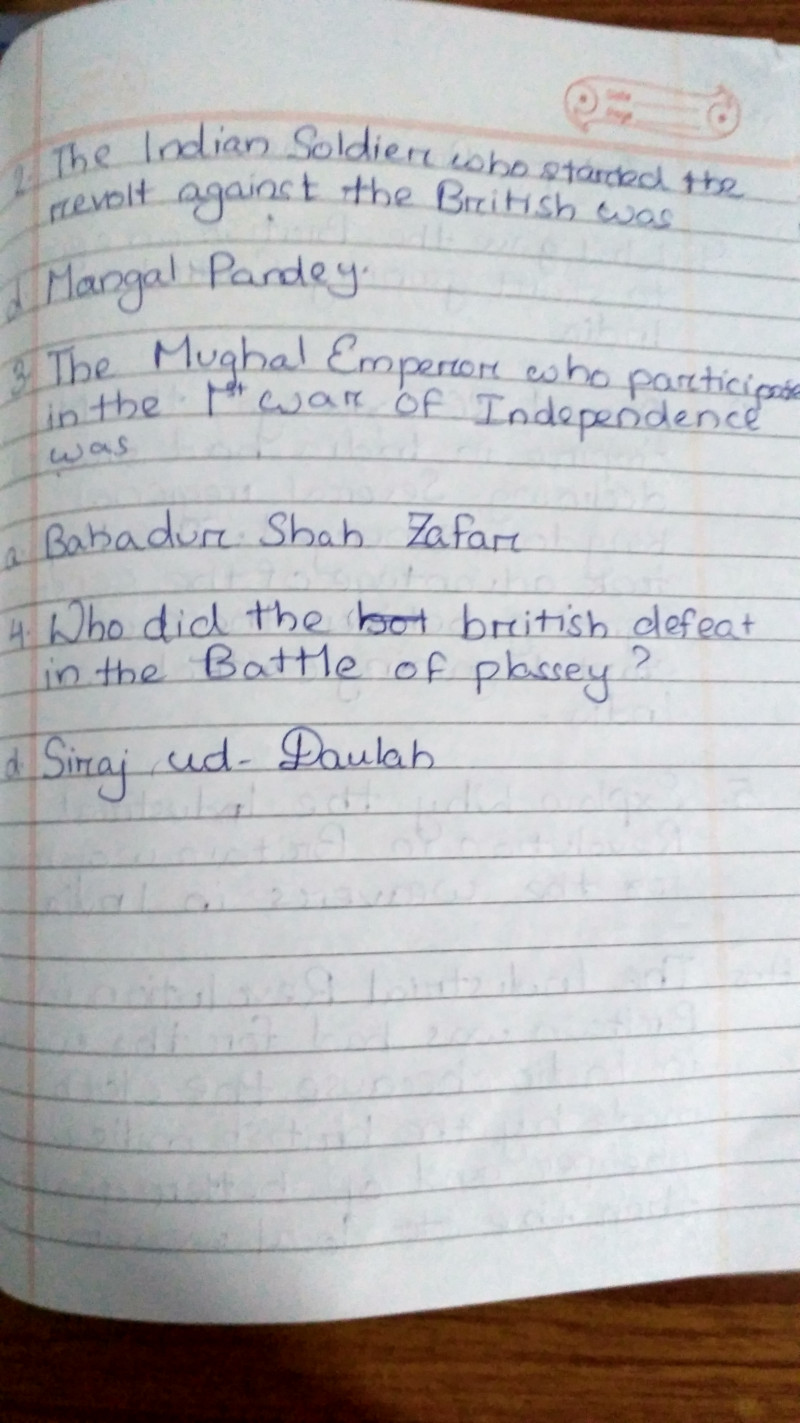 Date
Page
2. The Indian Soldier who started the
revolt against the British was
d Mangal Pandey.
3 The Mughal Emperor who participate
in the 1st war of Independence
was
a. Bahadur Shah Zafar
4. Who did the bot british defeat
in the Battle of plassey?
d. Siraj ud- Daulah